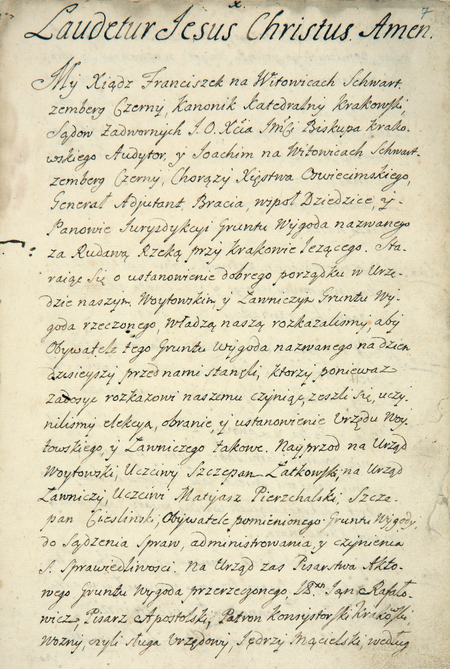 7
x
Laudetur Jesus Christus Amen.
My Xiądz Franciszek na Witowicach Schwart
zemberg Czerny, Kanonik Katedralny Krakowski
Sądow Zadwornych J. O. Xcia Jmći Biskupa Krako-
wskiego Audytor, y Joachim na Witowicach Schwart-
zemberg Czerny, Chorąży Xięstwa Oswiecimskiego,
Generał Adjutant Bracia, wspoł Dziedzice, y
Panowie Jurysdykcyi Gruntu Wygoda nazwanego
za Rudawą Rzeką przy Krakowie leżącego. Sta-
raiąc się o ustanowienie dobrego porządku w Urzę-
dzie naszym Woytowskim y Ławniczym Gruntu Wy-
goda rzeczonego, władzą naszą rozkazaliśmy, aby
Obywatele tego Gruntu Wygoda nazwanego na dzien
dzisieyszy przed nami stanęli, ktorzy ponieważ
zadosyc rozkazowi naszemu czyniąc, zeszli się, uczy-
niliśmy elekcyą, obranie, y ustanowienie Urzędu Woy-
towskiego, y Ławniczego takowe. Nayprzod na Urząd
Woytowski, Uczciwy Szczepan Latkowski, na Urząd
Ławniczy, Uczciwi Matyjasz Pierzchalski, Szcze-
pan Cieslinski, Obywatele pomienionego Gruntu Wygody,
do Sądzenia Spraw, administrowania y czynienia
S. Sprawiedliwosci. Na Urząd zas Pisarstwa Akto-
wego Gruntu Wygoda przerzeczonego, Jan Rafało-
wicz, Pisarz Apostolski, Patron Konsystorski Krakowski
Wozny, czyli sługa Urzędowy, Jędrzy Mącielski, według